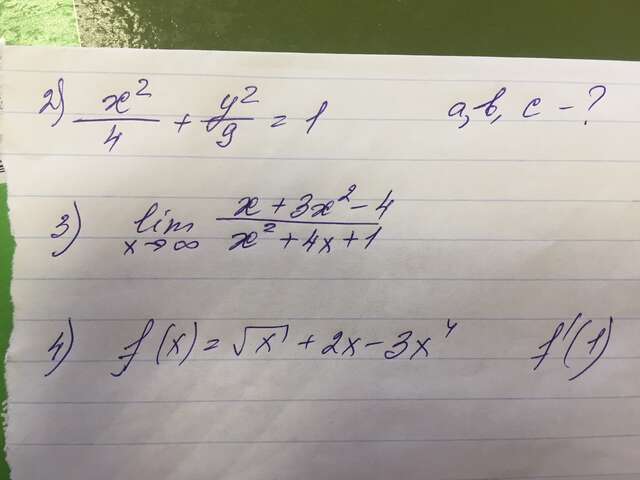 2) x²/4 + y²/9 = 1 a, b, c - ?
3) lim x→∞ (x + 3x² - 4)/(x² + 4x + 1)
4) f(x) = √x + 2x - 3x⁴ f'(1)